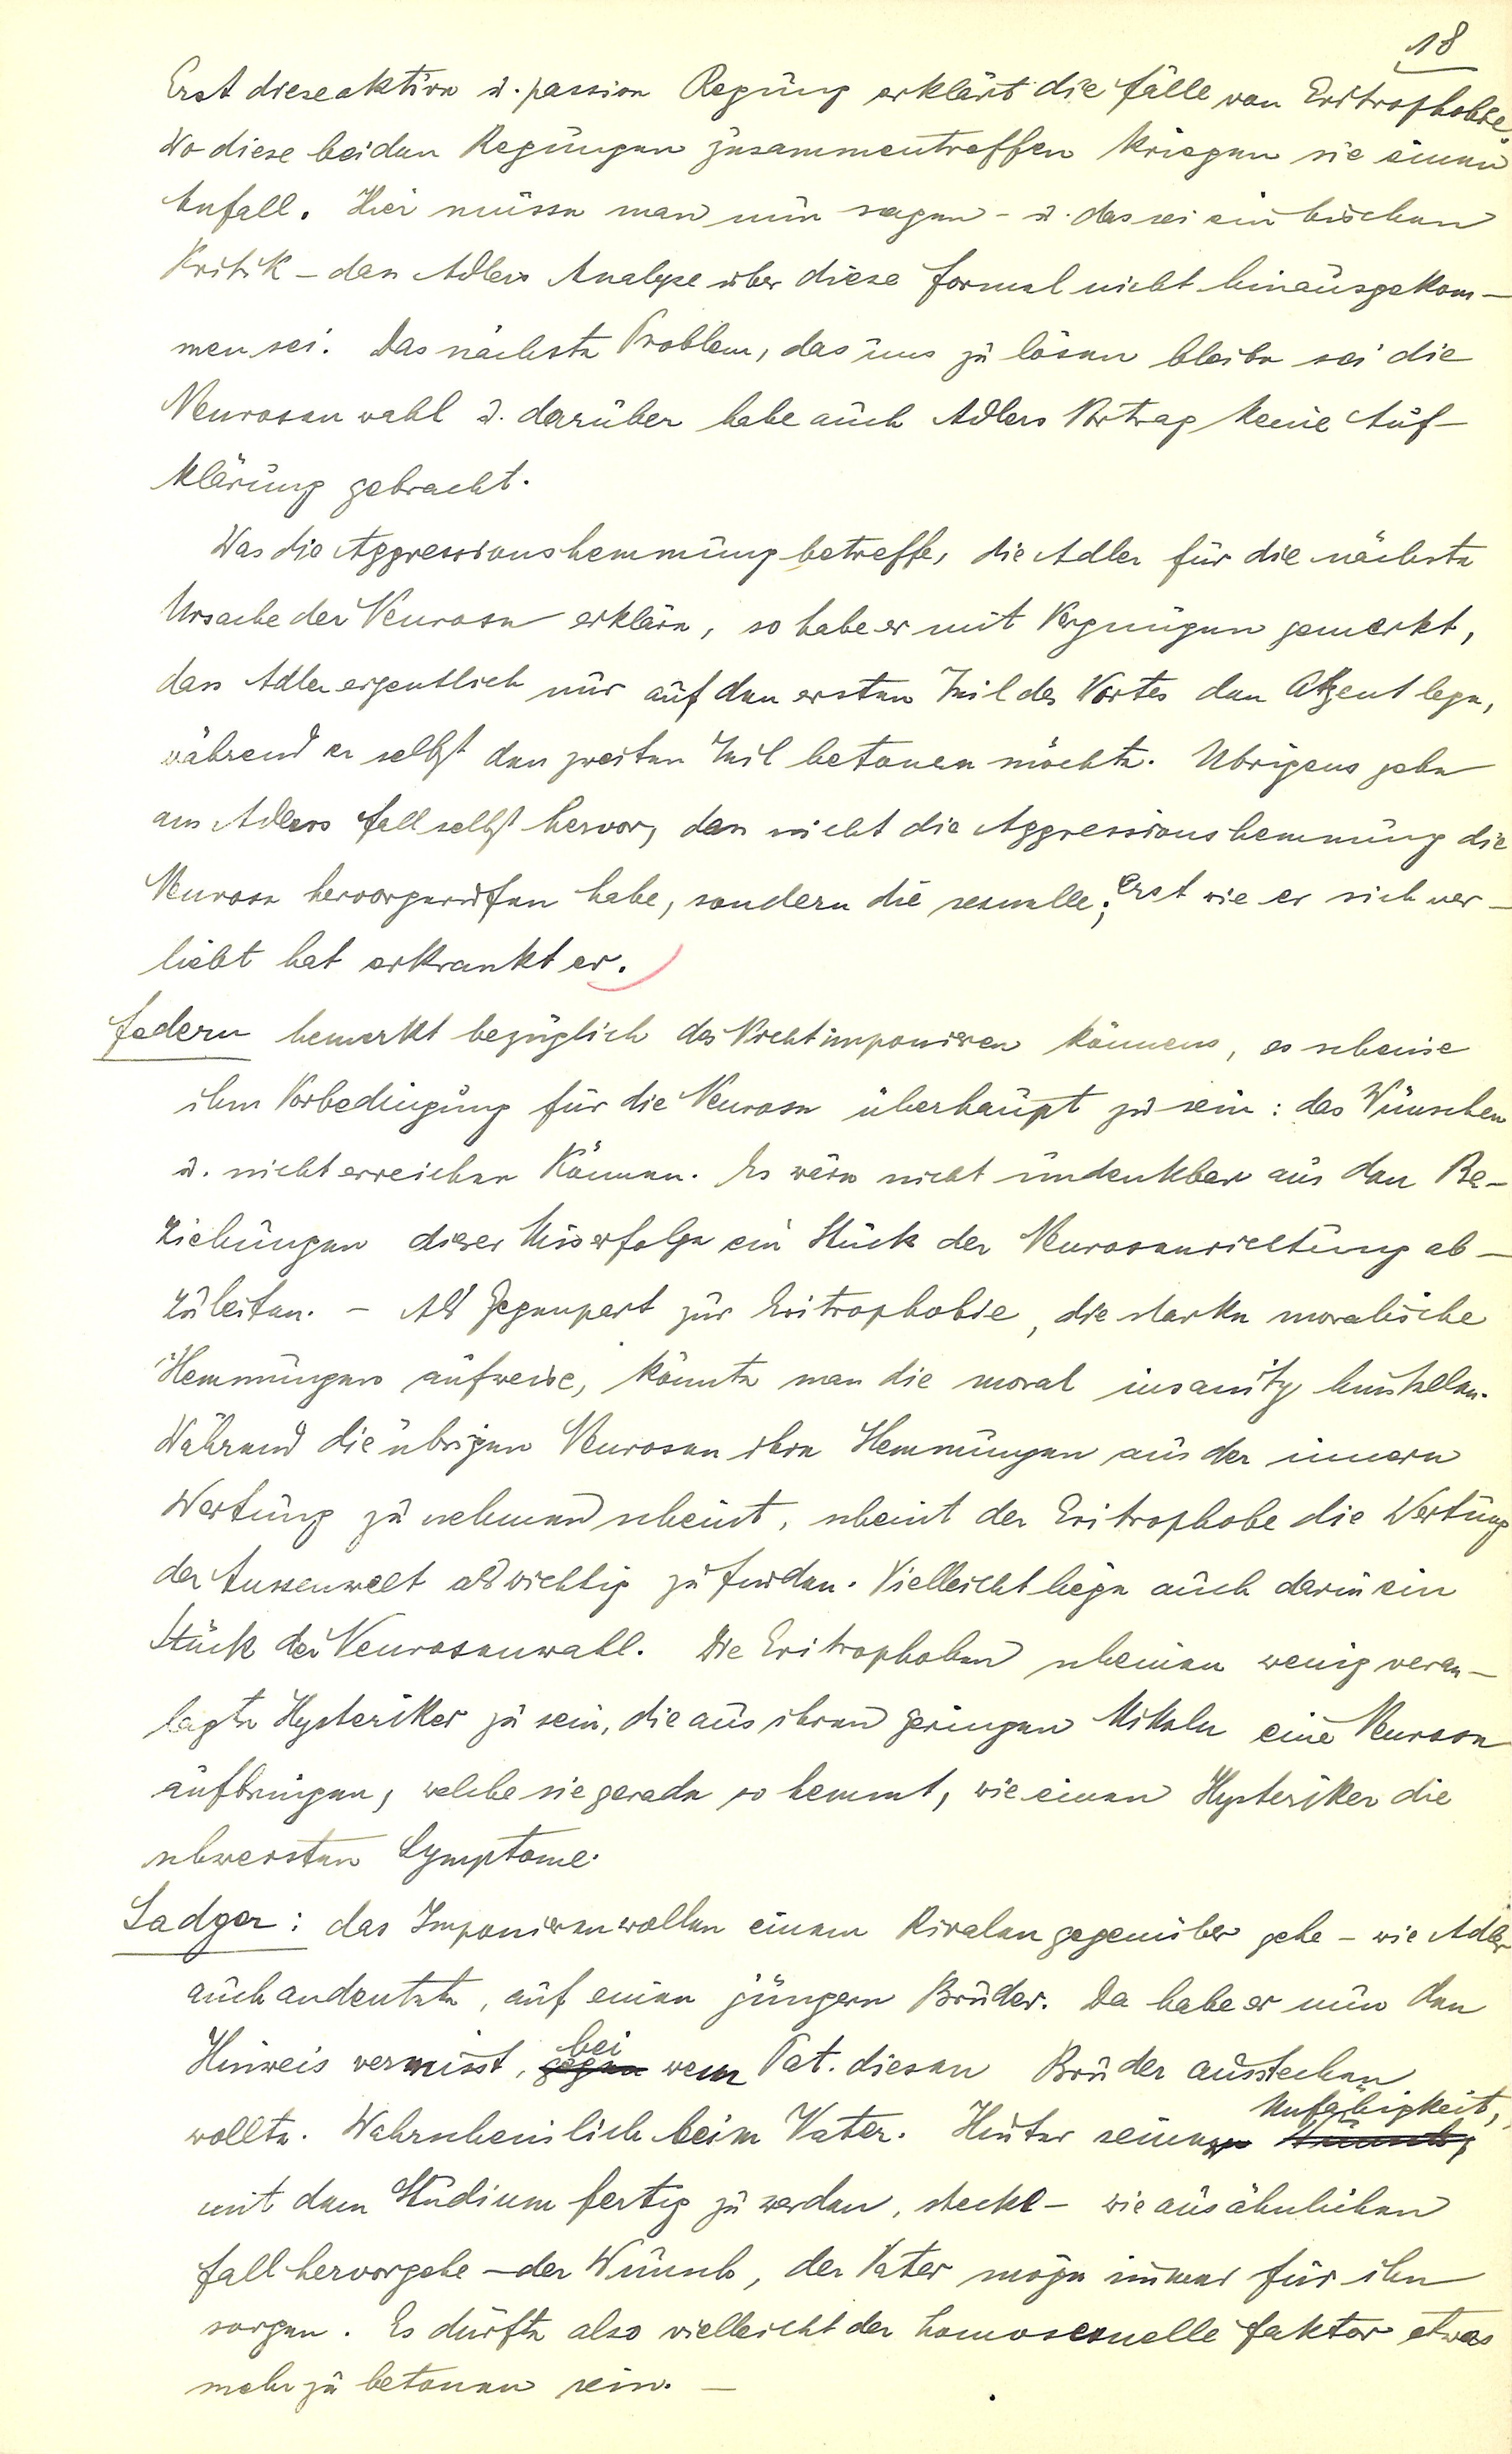 18
Erst diese aktive u. passive Regung erklärt die Fälle von Eritrophobie.
Wo diese beiden Regungen zusammentreffen kriegen sie einen
Anfall. Hier müsse man nun sagen - u. das sei ein bischen
Kritik - dass Adlers Analyse über diese Formel nicht hinausgekom-
men sei. Das nächste Problem, das uns zu lösen bleibe sei die
Neurosenwahl u. darüber habe auch Adlers Vortrag keine Auf-
klärung gebracht.
Was die Aggressionshemmung betreffe, die Adler für die nächste
Ursache der Neurose erkläre, so habe er mit Vergnügen gemerkt,
dass Adler eigentlich nur auf den ersten Teil des Wortes den Akzent lege,
während er selbst den zweiten Teil betonen möchte. Übrigens gehe
aus Adlers Fall selbst hervor, dass nicht die Aggressionshemmung die
Neurose hervorgerufen habe, sondern die sexuelle; Erst wie er sich ver-
liebt hat erkrankt er.
Federn bemerkt bezüglich des Nichtimponiren könnens, es scheine
ihm Vorbedingung für die Neurose überhaupt zu sein: das Wünschen
u. nicht erreichen Können. Es wäre nicht undenkbar aus den Be-
ziehungen dieser Misserfolge ein Stück der Neurosenrichtung ab-
zuleiten. - Als Gegenpart zur Eritrophobie, die starke moralische
Hemmungen aufweise, könnte man die moral insanity hinstellen.
Während die übrigen Neurosen ihre Hemmungen aus der innern
Wertung zu nehmen scheint, scheint der Eritrophobe die Wertung
der Aussenwelt als wichtig zu finden. Vielleicht liege auch darin ein
Stück der Neurosenwahl. Die Eritrophoben scheinen wenig veran-
lagte Hysteriker zu sein, die aus ihren geringen Mitteln eine Neurose
aufbringen, welche sie gerade so hemmt, wie einen Hysteriker die
schwersten Symptome.
Sadger: das Imponierenwollen einem Rivalen gegenüber gehe - wie Adler
auch andeutete, auf einen jüngern Bruder. Da habe er nun den
Hinweis vermisst, gegen bei wem Pat. diesen Bruder ausstechen
wollte. Wahrscheinlich beim Vater. Hinter seiner Wunsch, Unfähigkeit,
mit dem Studium fertig zu werden, steckt - wie aus ähnlichen
Fall hervorgehe - der Wunsch, der Vater möge immer für ihn
sorgen. Es dürfte also vielleicht der homosexuelle Faktor etwas
mehr zu betonen sein. -